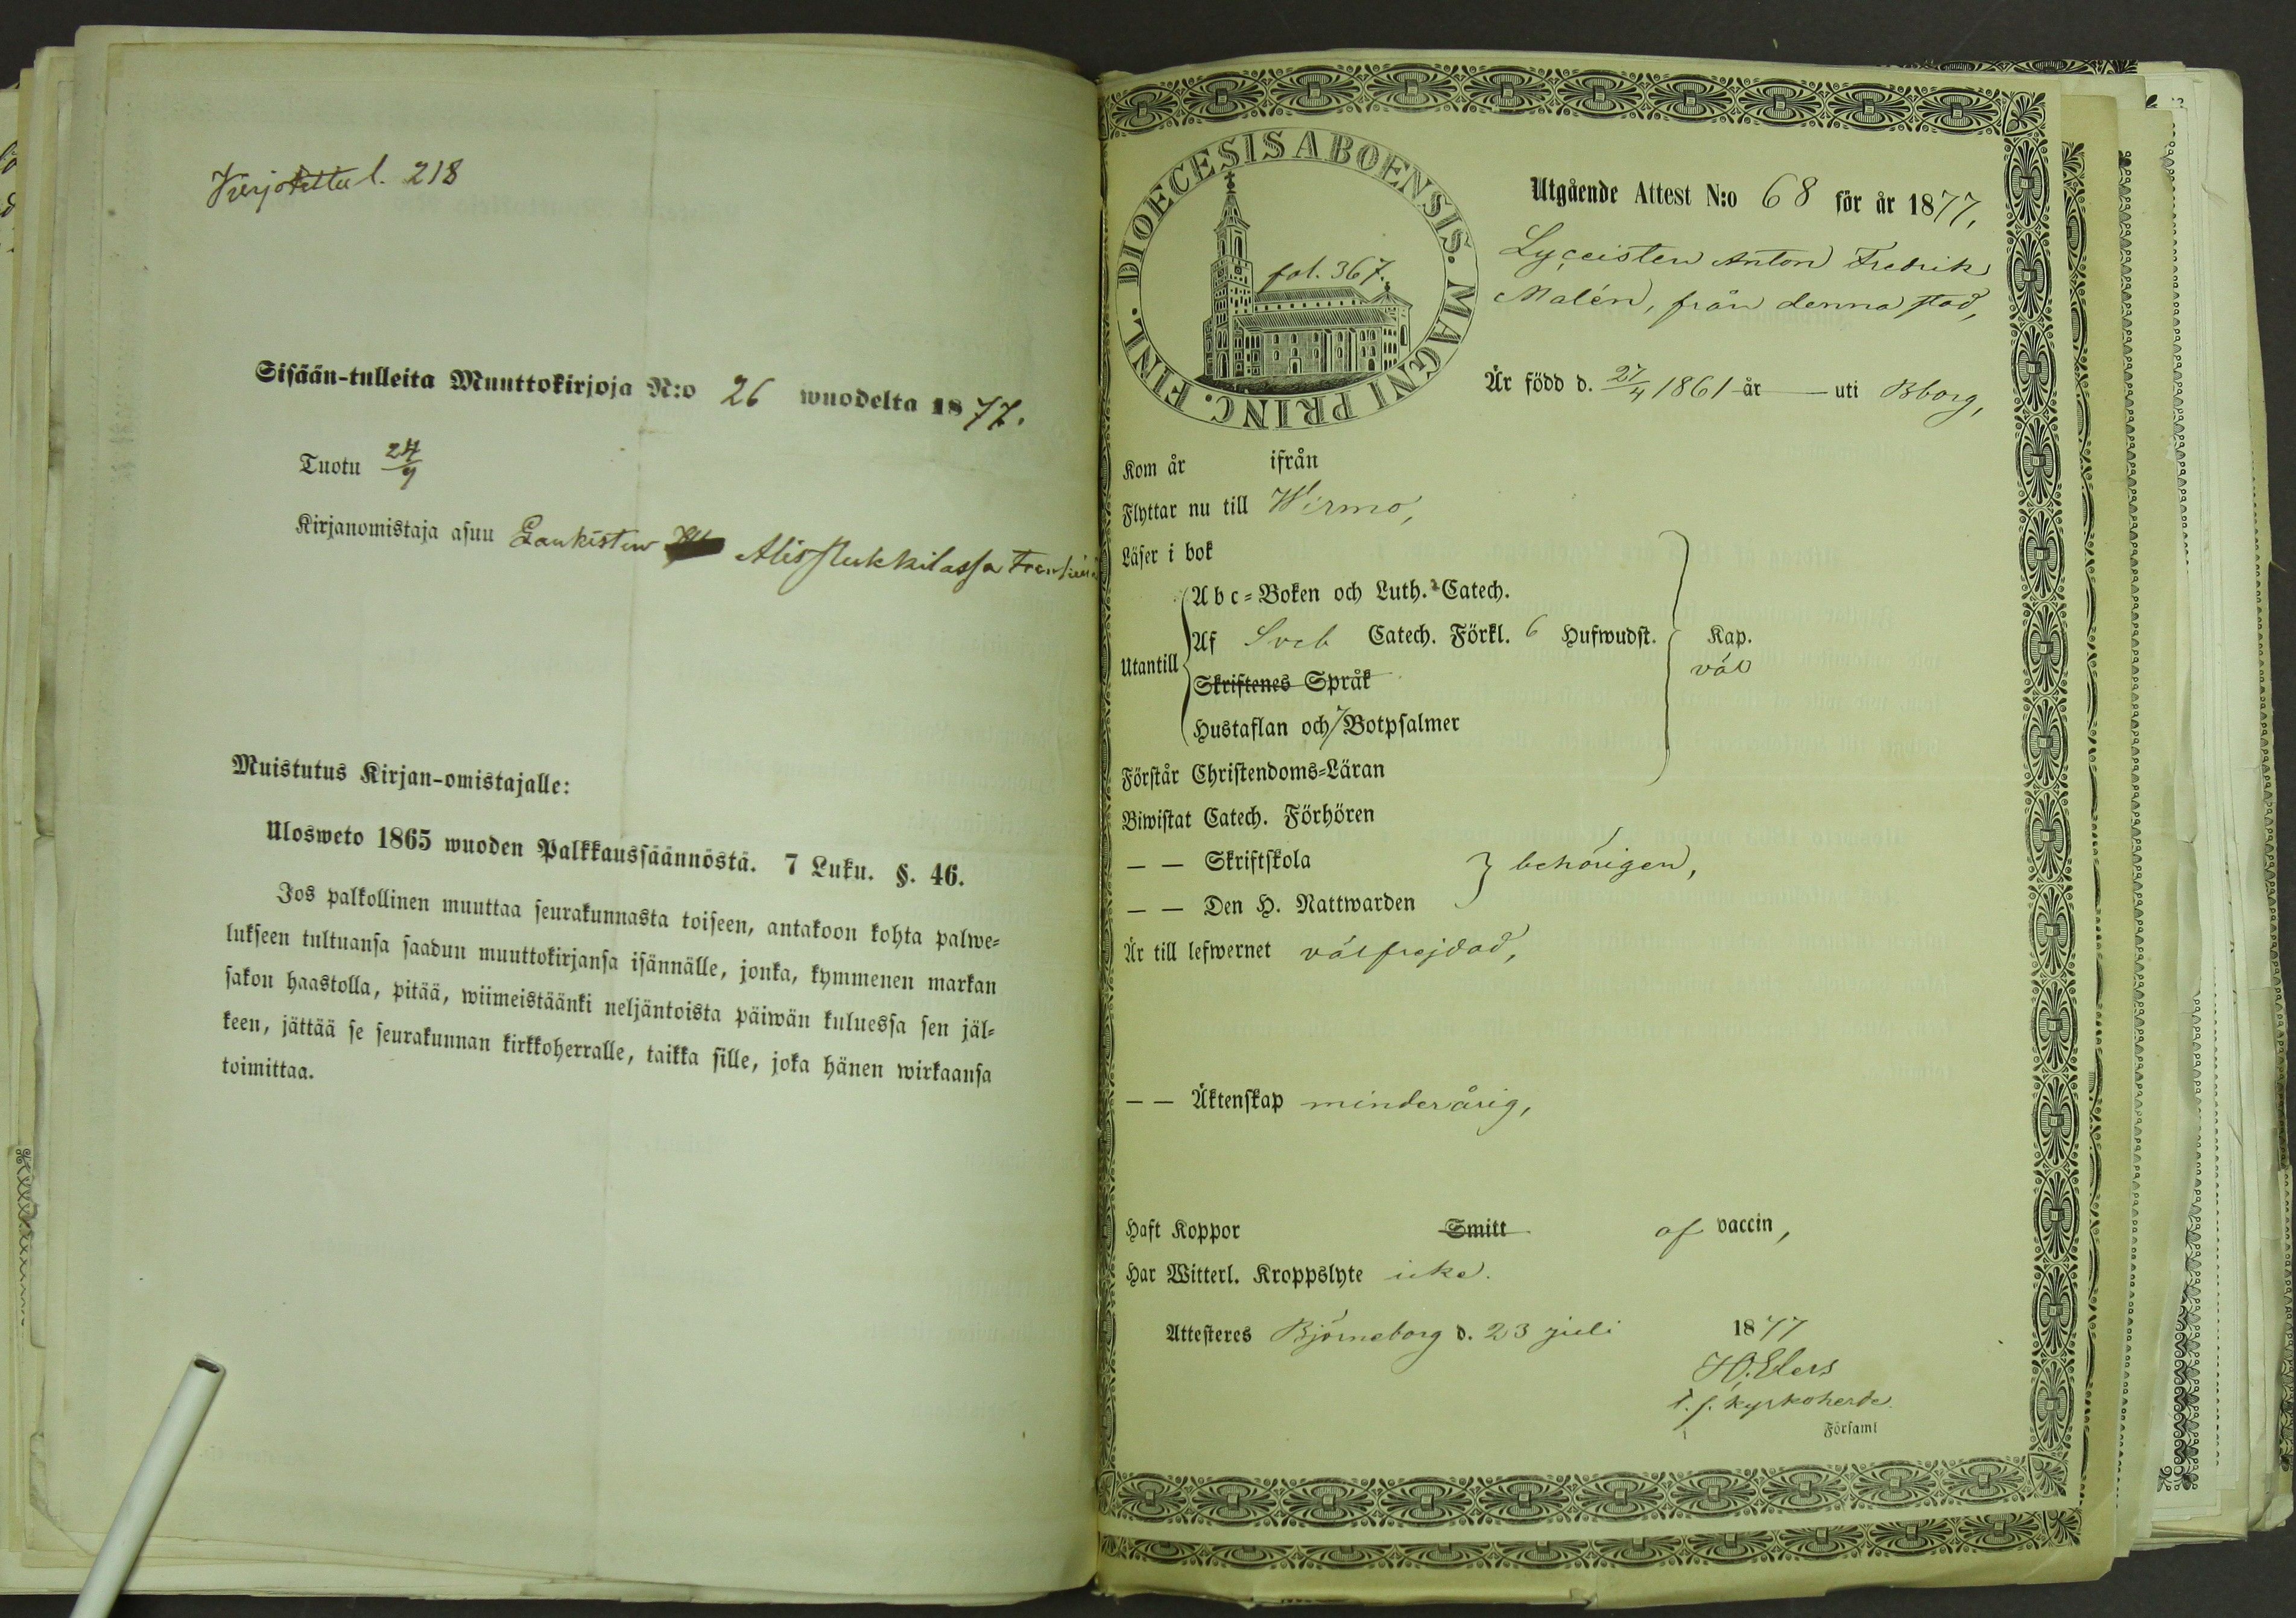 Kirjotettu l. 218
Sisään-tulleita Muuttokirjoja N:o 26 wuodelta 1877.
Tuotu 24/9
Kirjanomistaja asuu Laukisten Alissukkilassa
Muistutus Kirjan-omistajalle:
Ulosweto 1865 wuoden Palkkaussäännöstä. 7 Luku. §. 46.
Jos palkollinen muuttaa seurakunnasta toiseen, antakoon kohta palwe=
lukseen tultuansa saadun muuttokirjansa isännälle, jonka, kymmenen markan
sakon haastolla, pitää, wiimeistäänki neljäntoista päiwän kuluessa sen jäl=
keen, jättää se seurakunnan kirkkoherralle, taikka sille, joka hänen wirkaansa
toimittaa.
DIOECESIS ABOENSIS. MAGNI PRINC. FINL.
fol. 367.
Utgående Attest N:o 68 för år 1877,
Lyceisten Anton Fredrik
Malén, från denna stad,
Är född d. 27/4 1861 år — uti Bborg,
Kom år ifrån
Flyttar nu till Wirmo,
Läser i bok
Utantill
Abc=Boken och Luth. Catech.
Af Sveb Catech. Förkl. 6 Hufwudst.
Skriftenes Språk
Hustaflan och 7 Botpsalmer
Kap.
väl
Förstår Christendoms=Läran
Biwistat Catech. Förhören
— — Skriftskola
— — Den H. Nattwarden
behörigen,
Är till lefwernet välfrejdad,
— — Äktenskap minderårig,
Haft Koppor Smitt af vaccin,
Har Witterl. Kroppslyte icke.
Attesteres Björneborg d. 23 juli 1877
H. Elers
t. f. kyrkoherde.
Församl